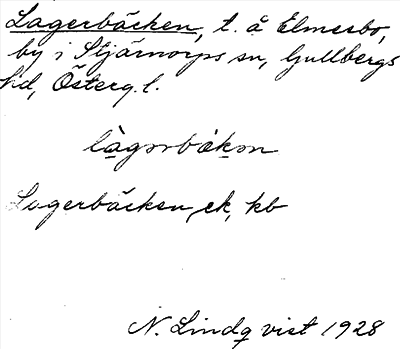 Lagerbäcken, t. å Elmesbo,
by i Stjärnorps sn, Gullbergs
hd, Österg. l.
làgǝrbäkǝn
Lagerbäcken ek, kb
N. Lindqvist 1928